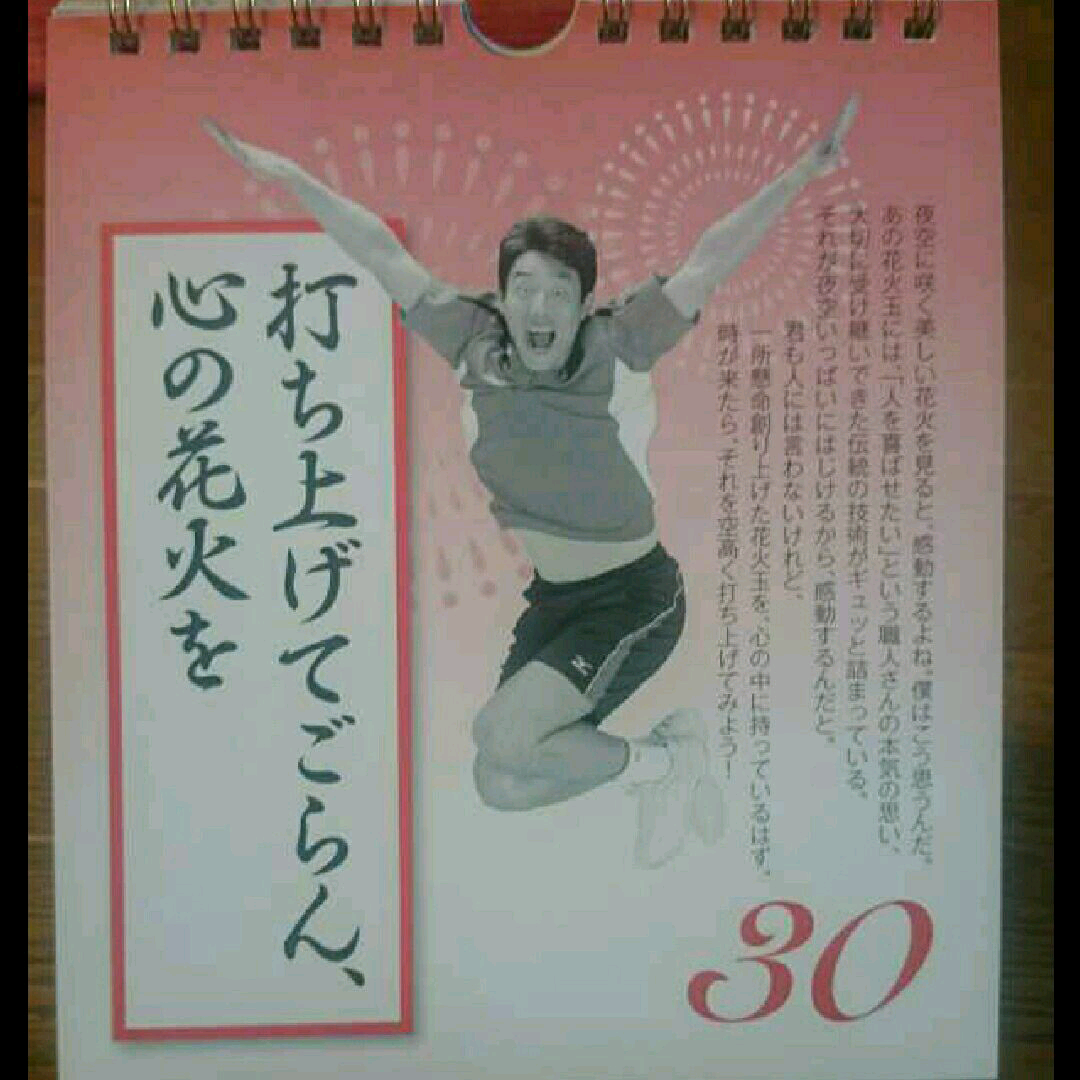 夜空に咲く美しい花火を見ると、感動するよね。僕はこう思うんだ。
あの花火玉には、「人を喜ばせたい」という職人さんの本気の思い、
大切に受け継いできた伝統の技術がギュッと詰まっている。
それが夜空いっぱいにはじけるから、感動するんだと。
君も人には言わないけれど、
一所懸命創り上げた花火玉を、心の中に持っているはず。
時が来たら、それを空高く打ち上げてみよう！
打ち上げてごらん、
心の花火を
30